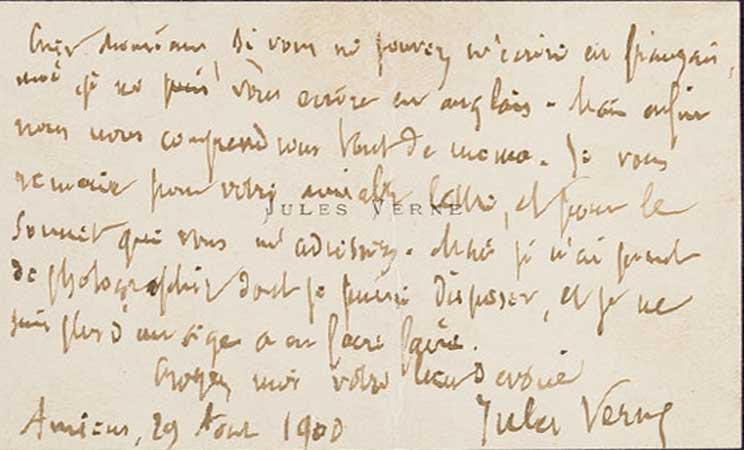 Cher Monsieur, Si vous ne pouvez m'écrire en français,
moi je ne puis vous écrire en anglais. Mais enfin
nous nous comprendrons tout de même. Je vous
remercie pour votre aimable lettre, et pour le
JULES VERNE
sonnet que vous m'adressez. Mais je n'ai point
de photographie dont je puisse disposer, et je ne
suis plus d'un âge à en faire faire.
Croyez moi votre bien dévoué
Jules Verne
Amiens, 29 Août 1900